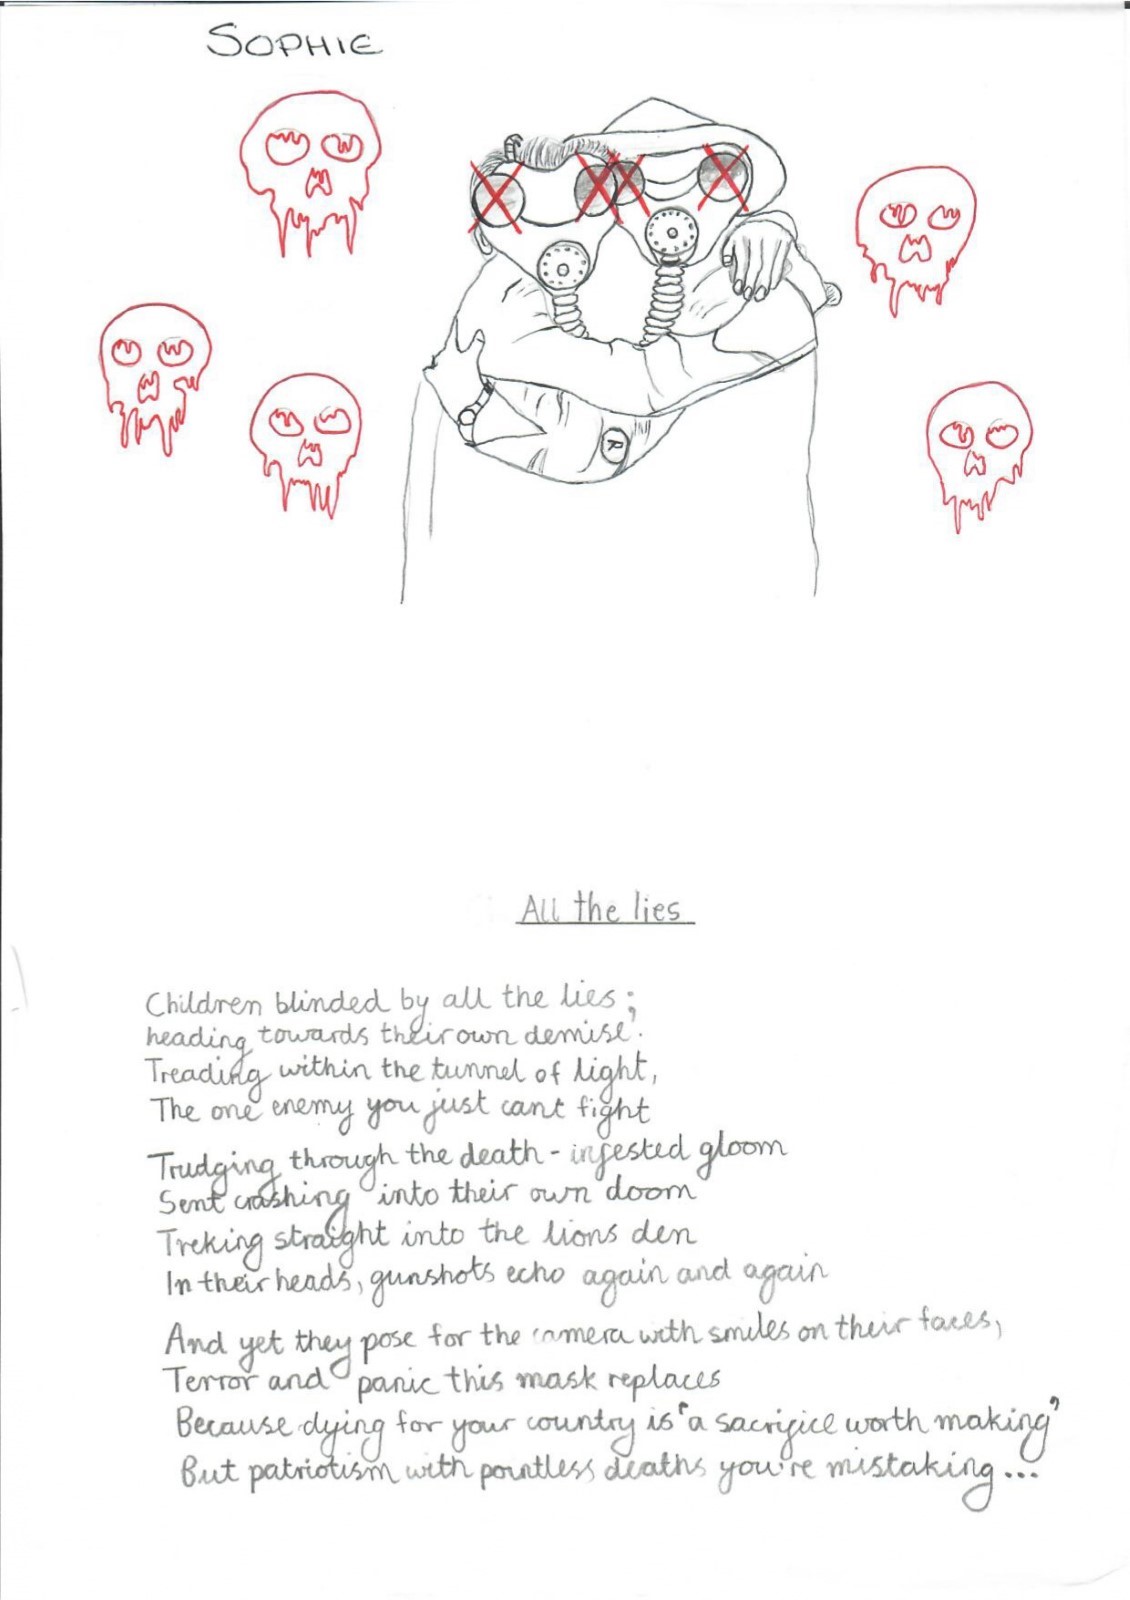 SOPHIE
R
All the lies
Children blinded by all the lies;
heading towards their own demise.
Treading within the tunnel of light,
The one enemy you just cant fight
Trudging through the death-infested gloom
Sent crashing into their own doom
Treking straight into the lions den
In their heads, gunshots echo again and again
And yet they pose for the camera with smiles on their faces,
Terror and panic this mask replaces
Because dying for your country is "a sacrifice worth making"
But patriotism with pointless deaths you're mistaking...